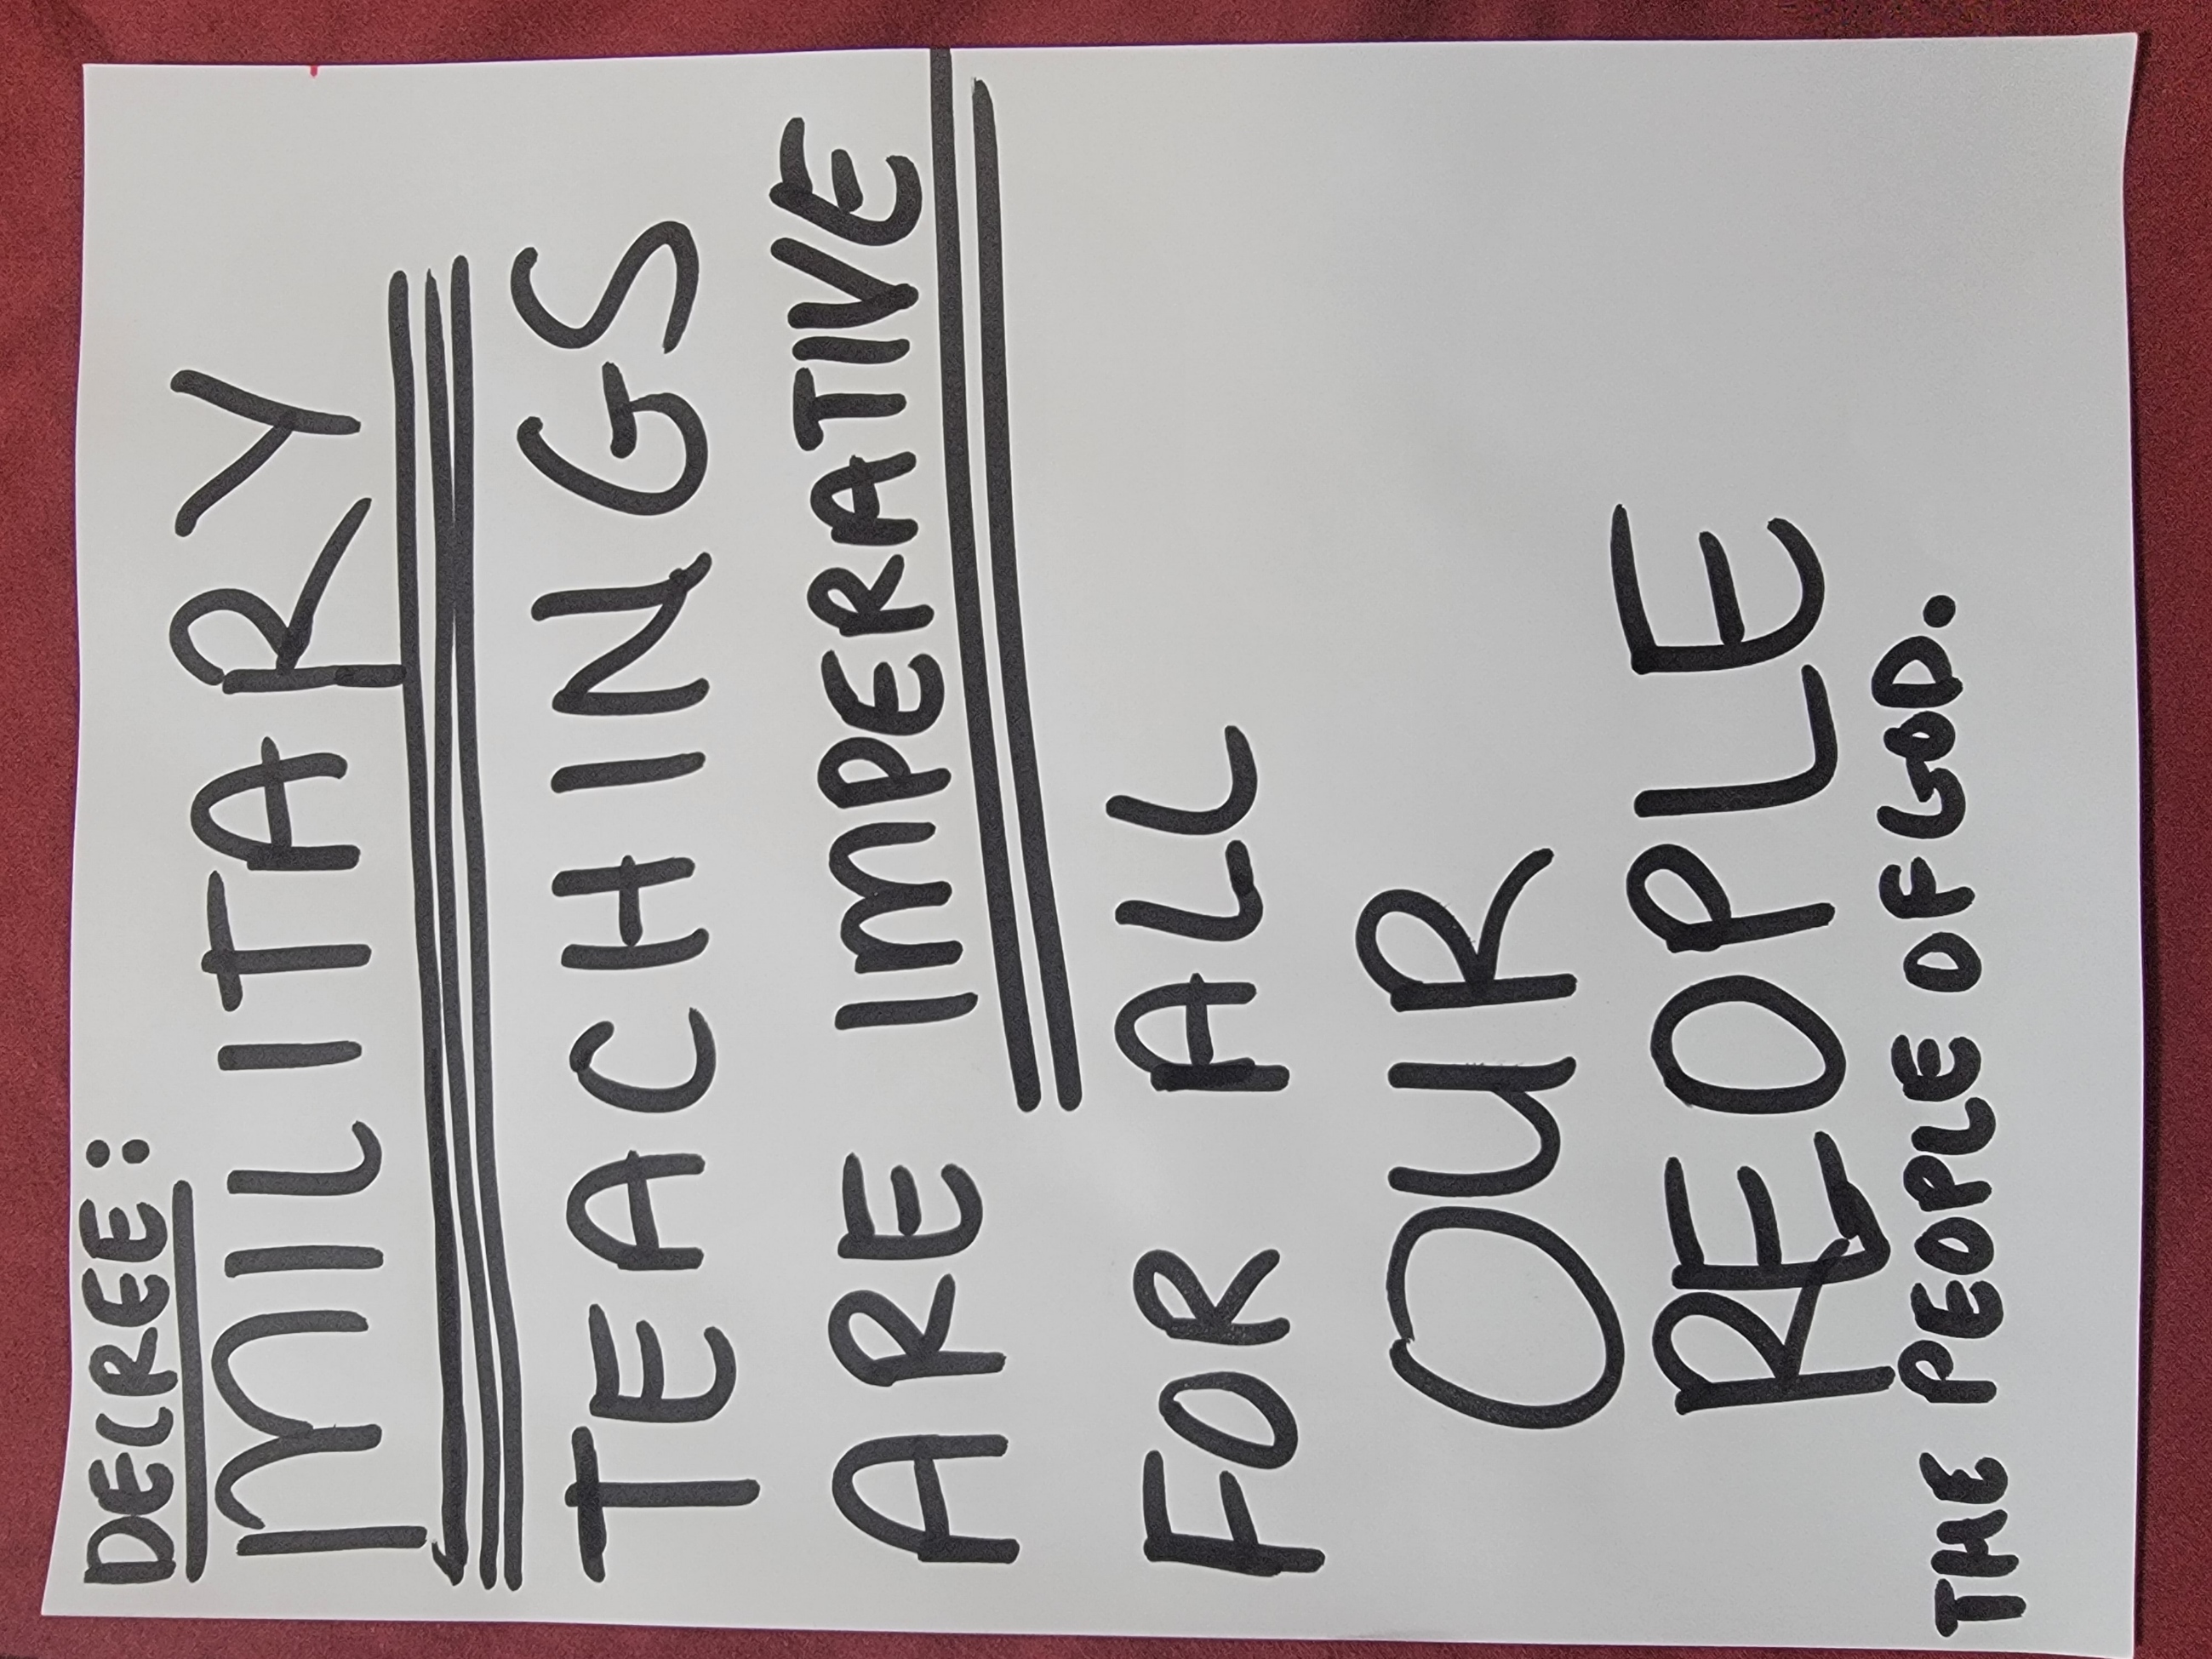 DECREE:
MILITARY
TEACHINGS
ARE IMPERATIVE
FOR ALL
OUR
REOPLE
THE PEOPLE OF GOD.